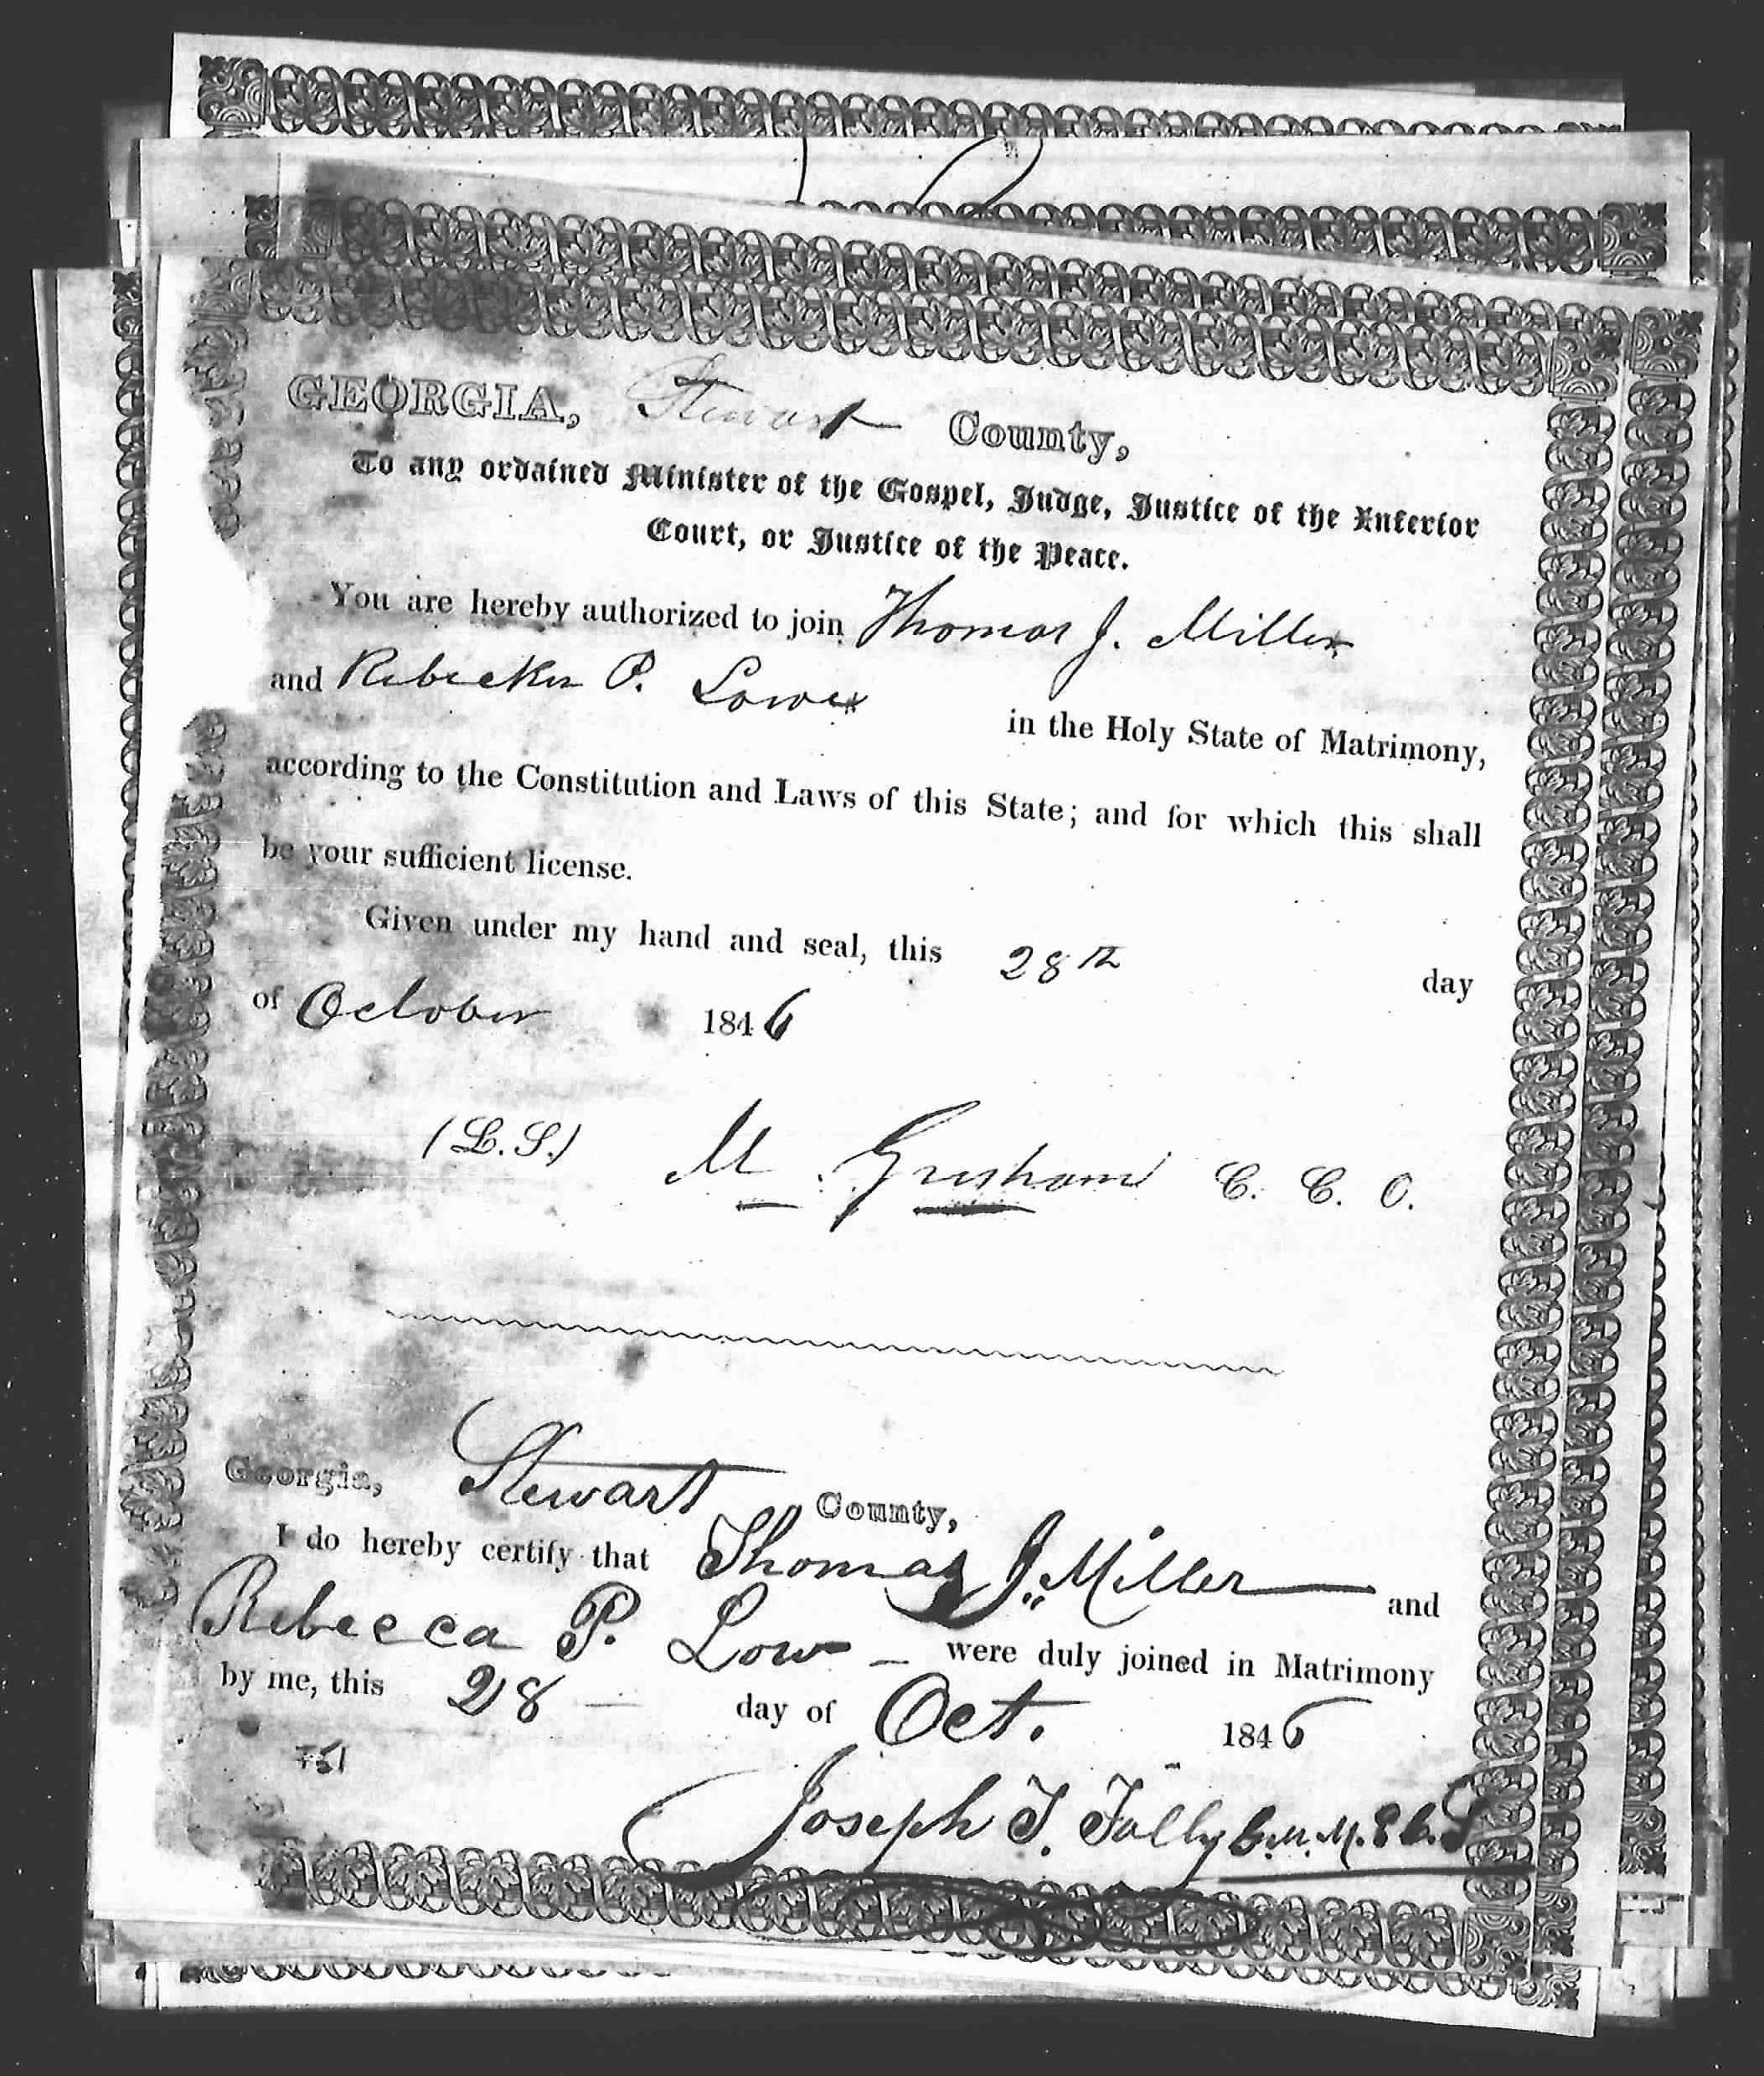 GEORGIA, Stewart County,
To any ordained Minister of the Gospel, Judge, Justice of the Inferior
Court, or Justice of the Peace.
You are hereby authorized to join Thomas J. Miller
and Rebecker P. Lowe
in the Holy State of Matrimony,
according to the Constitution and Laws of this State; and for which this shall
be your sufficient license.
Given under my hand and seal, this 28th day
of October 1846
(L.S.) M Gresham C. C. O.
Georgia, Stewart County,
I do hereby certify that Thomas J. Miller and
Rebecca P. Low were duly joined in Matrimony
by me, this 28 day of Oct. 1846
751
Joseph T.